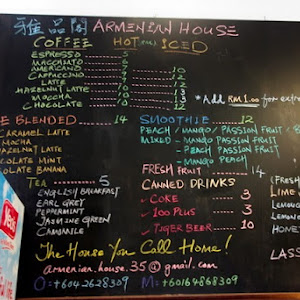 雅品閣 ARMENIAN HOUSE
COFFEE HOT ICED
ESPRESSO 5
MACCHIATO 6
AMERICANO 10
CAPPUCCINO 12
LATTE
HAZELNUT LATTE
MOCHA
CHOCOLATE 10 12
* Add RM 1.00 for extr
E BLENDED 14
CARAMEL LATTE
MOCHA
ZELNUT LATTE
COLATE MINT
COLATE BANANA
SMOOTHIE 12
PEACH / MANGO / PASSION FRUIT /
MIXED - MANGO PASSION FRUIT
- PEACH PASSION FRUIT
- MANGO PEACH
FRESH FRUIT 14
TEA 5
ENGLISH BREAKFAST
EARL GREY
PEPPERMINT
JASMINE GREEN
CAMOMILE
CANNED DRINKS
✓ COKE 3
✓ 100 PLUS 3
✓ TIGER BEER 10
(FRESH
LIME
LEMON
LEMON
HONEY
LASS
The House You Call Home!
armenian.house.35@gmail.com
O: +6042628309 M: +60164868309